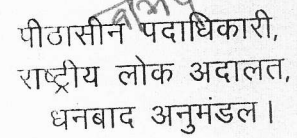 पीठासीन पदाधिकारी,
राष्ट्रीय लोक अदालत,
धनबाद अनुमंडल।